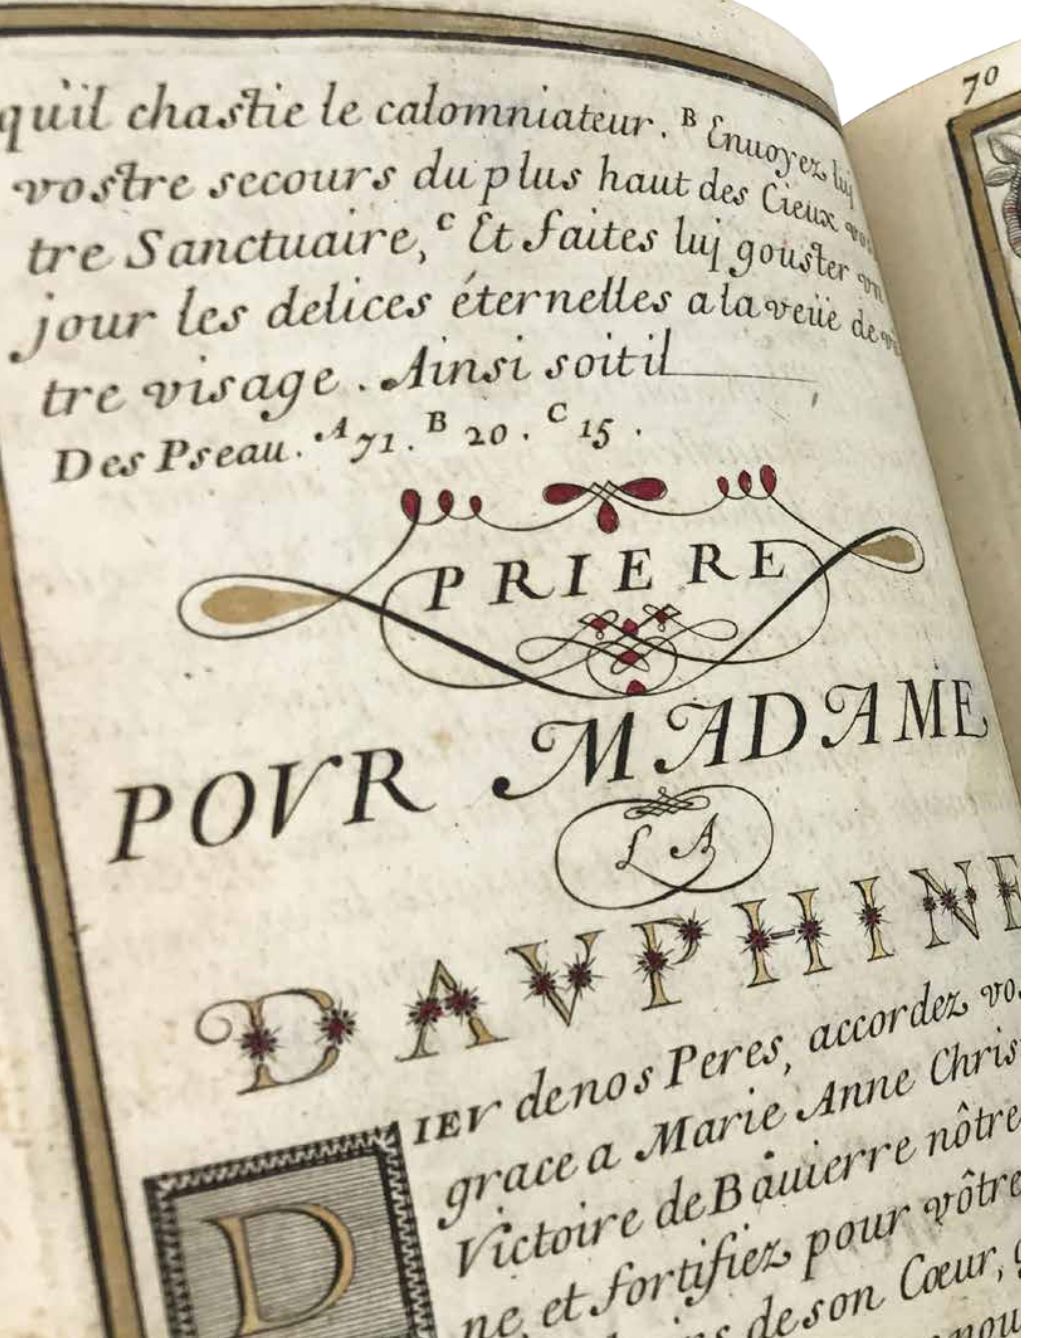 qu'il chastie le calomniateur. B Enuoyez luy
vostre secours du plus haut des Cieux
tre Sanctuaire, C Et faites luy gouster vn
jour les delices éternelles a la veüe de
tre visage. Ainsi soit il
Des Pseau. A 71. B 20. C 15.
PRIERE
POVR MADAME
LA
DAVPHINE
DIEV de nos Peres, accordez
grace a Marie Anne Chris
Victoire de Bauierre nôtre
ne, et fortifiez pour vôtre
de son Cœur,
70